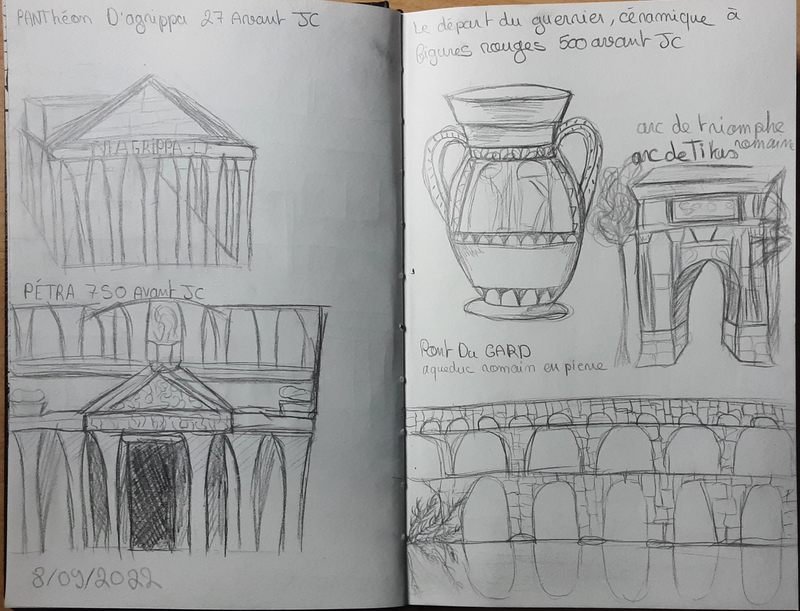 PANThéon D'agrippa 27 Avant JC
M·AGRIPPA·L·F
PÉTRA 750 Avant JC
8/09/2022
Le départ du guerrier, céramique à
figures rouges 500 avant JC
arc de triomphe
romain
arc de Titus
Pont Du GARD
aqueduc romain en pierre